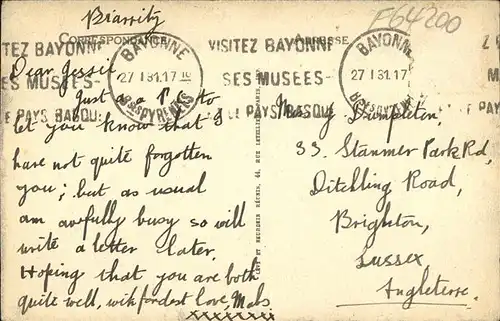 Biarritz
F64200
CORRESPONDANCE
ADRESSE
VISITEZ BAYONNE
SES MUSEES-
LE PAYS BASQUE
BAYONNE
27 1 31.17
BSES PYRENEES
VISITEZ BAYONNE
SES MUSEES-
LE PAYS BASQUE
BAYONNE
27 1 31.17
Dear Jessie
Just a P.C. to
let you know that I
have not quite forgotten
you; but as usual
am awfully busy so will
write a letter later.
Hoping that you are both
quite well, with fondest love Mabs
xxxxxxxx
LÉVY ET NEURDEIN RÉUNIS, 44, RUE LETELLIER, PARIS
Dumpleton,
33. Stanmer Park Rd,
Ditchling Road,
Brighton,
Sussex
Angleterre.